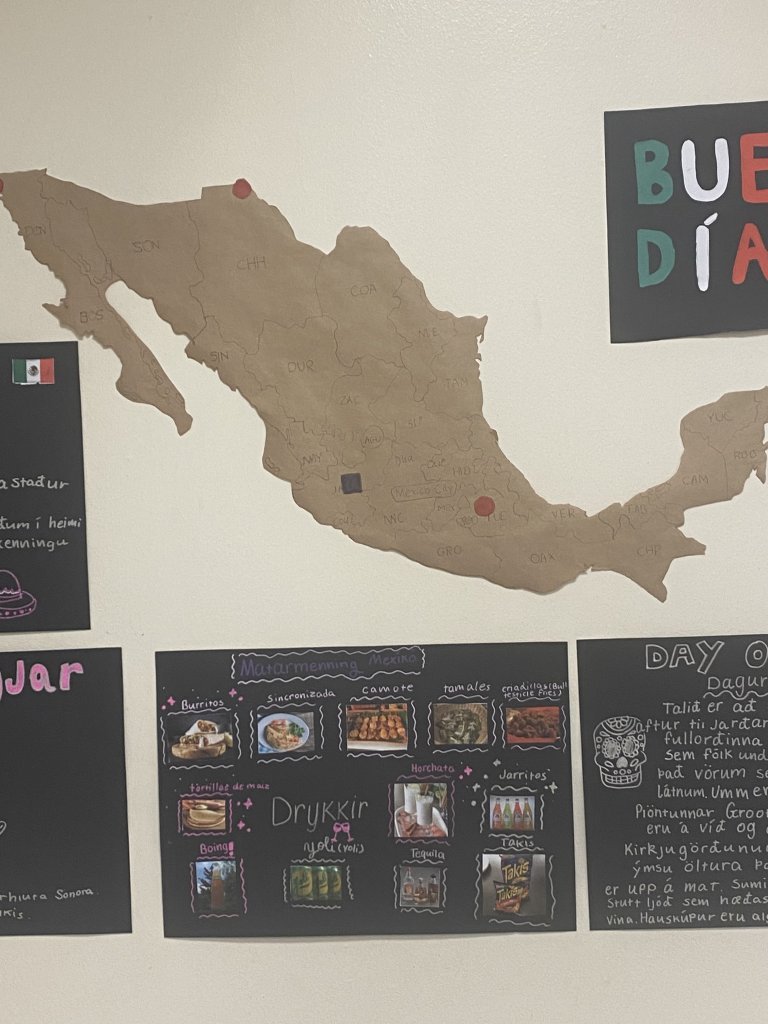 BUE
DÍA
SON
CHH
COA
BCS
SIN
DUR
TAM
ZAC
SLP
AGU
NAY
Mexico City
PUE
VER
GRO
OAX
CHP
CAM
YUC
TAB
a staður
ðum í heimi
kenningu
jar
Sonora.
Matarmenning Mexíko
Burritos
sincronizada
camote
tamales
criadillas (Bull
testicle fries)
tortillas de maiz
Drykkir
Horchata
Jarritos
Boing!
yoli (Yoli)
Tequila
Takis
Takis
DAY O
Dagur
Talið er að
aftur til Jarðar
fullorðinna
sem fólk und
það vörum se
látnum. Umm er
Piöntunnar Groo
eru á víð og
Kirkjugörðunu
ýmsu öltura
er upp á mat. Sumi
Stutt ljóð sem hæðas
vina. Hauskúpur eru alg